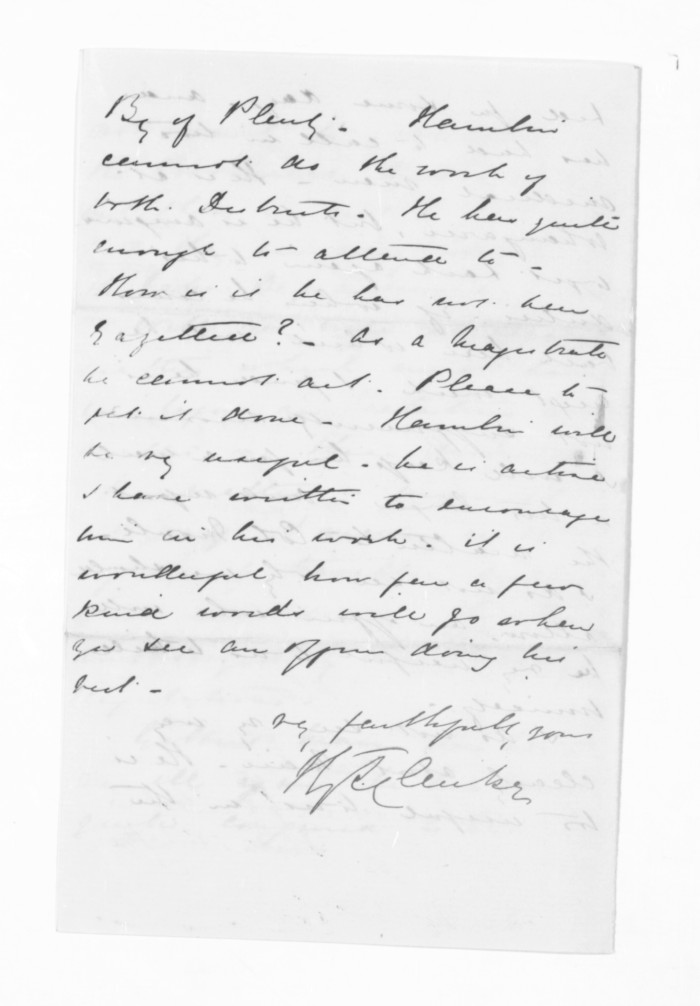 Bay of Plenty - Hamlin
cannot do the work of
both Districts - He has quite
enough to attend to -
How is it he has not been
gazetted? - As a Magistrate
he cannot act. Please to
get it done - Hamlin will
be vy useful - he is active
I have written to encourage
him in his work. it is
wonderful how far a few
kind words will go when
you see an officer doing his
best -
vy faithfully yours
H T Clarke